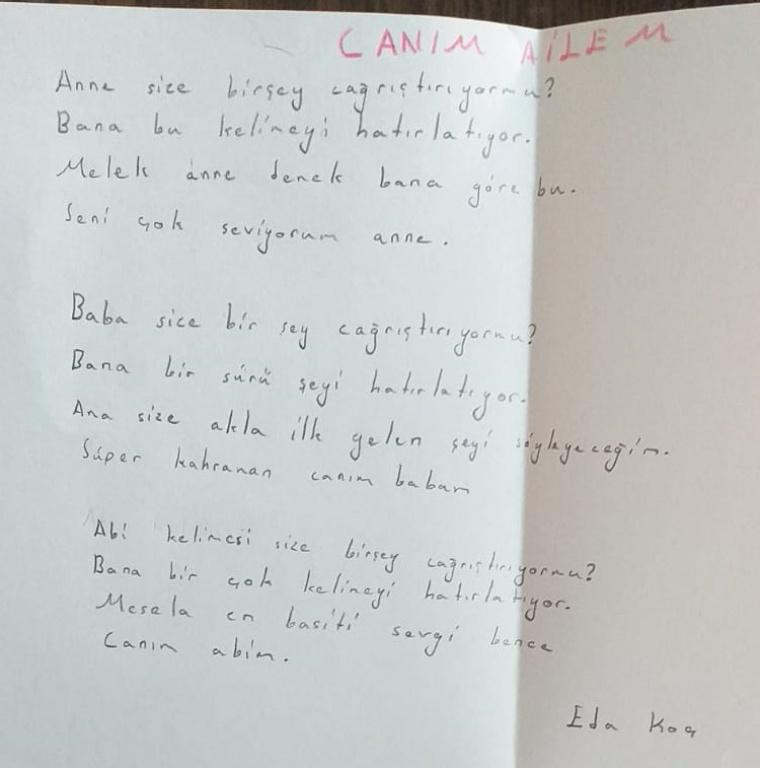 CANIM AİLEM
Anne size birşey cağrıştırıyormu?
Bana bu kelimeyi hatırlatıyor.
Melek anne demek bana göre bu.
Seni çok seviyorum anne.
Baba size bir şey cağrıştırıyormu?
Bana bir sürü şeyi hatırlatıyor.
Ama size akla ilk gelen şeyi söyleyeceğim.
Süper kahraman canım babam
Abi kelimesi size birşey cağrıştırıyormu?
Bana bir çok kelimeyi hatırlatıyor.
Mesela en basiti sevgi bence
Canım abim.
Eda Koç